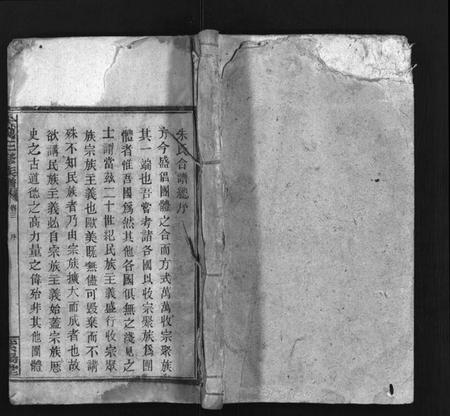 朱氏合譜總序
方今盛倡團體之合而方式萬萬收宗聚族
其一端也吾嘗考諸各國以收宗聚族爲團
體者惟吾國爲然其他各國俱無之淺見之
士謂當玆二十世紀民族主義盛行收宗聚
族宗族主義也歐美旣無儘可毀棄而不講
殊不知民族者乃由宗族擴大而成者也故
欲講民族主義必自宗族主義始蓋宗族歷
史之古道德之高力量之偉殆非其他團體